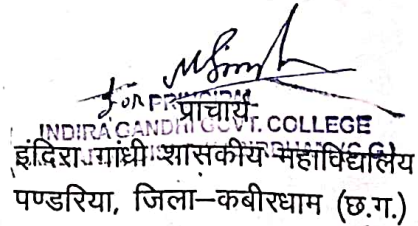 For PRINCIPAL
प्राचार्य
INDIRA GANDHI GOVT. COLLEGE
इंदिरा गांधी शासकीय महाविद्यालय
पण्डरिया, जिला–कबीरधाम (छ.ग.)